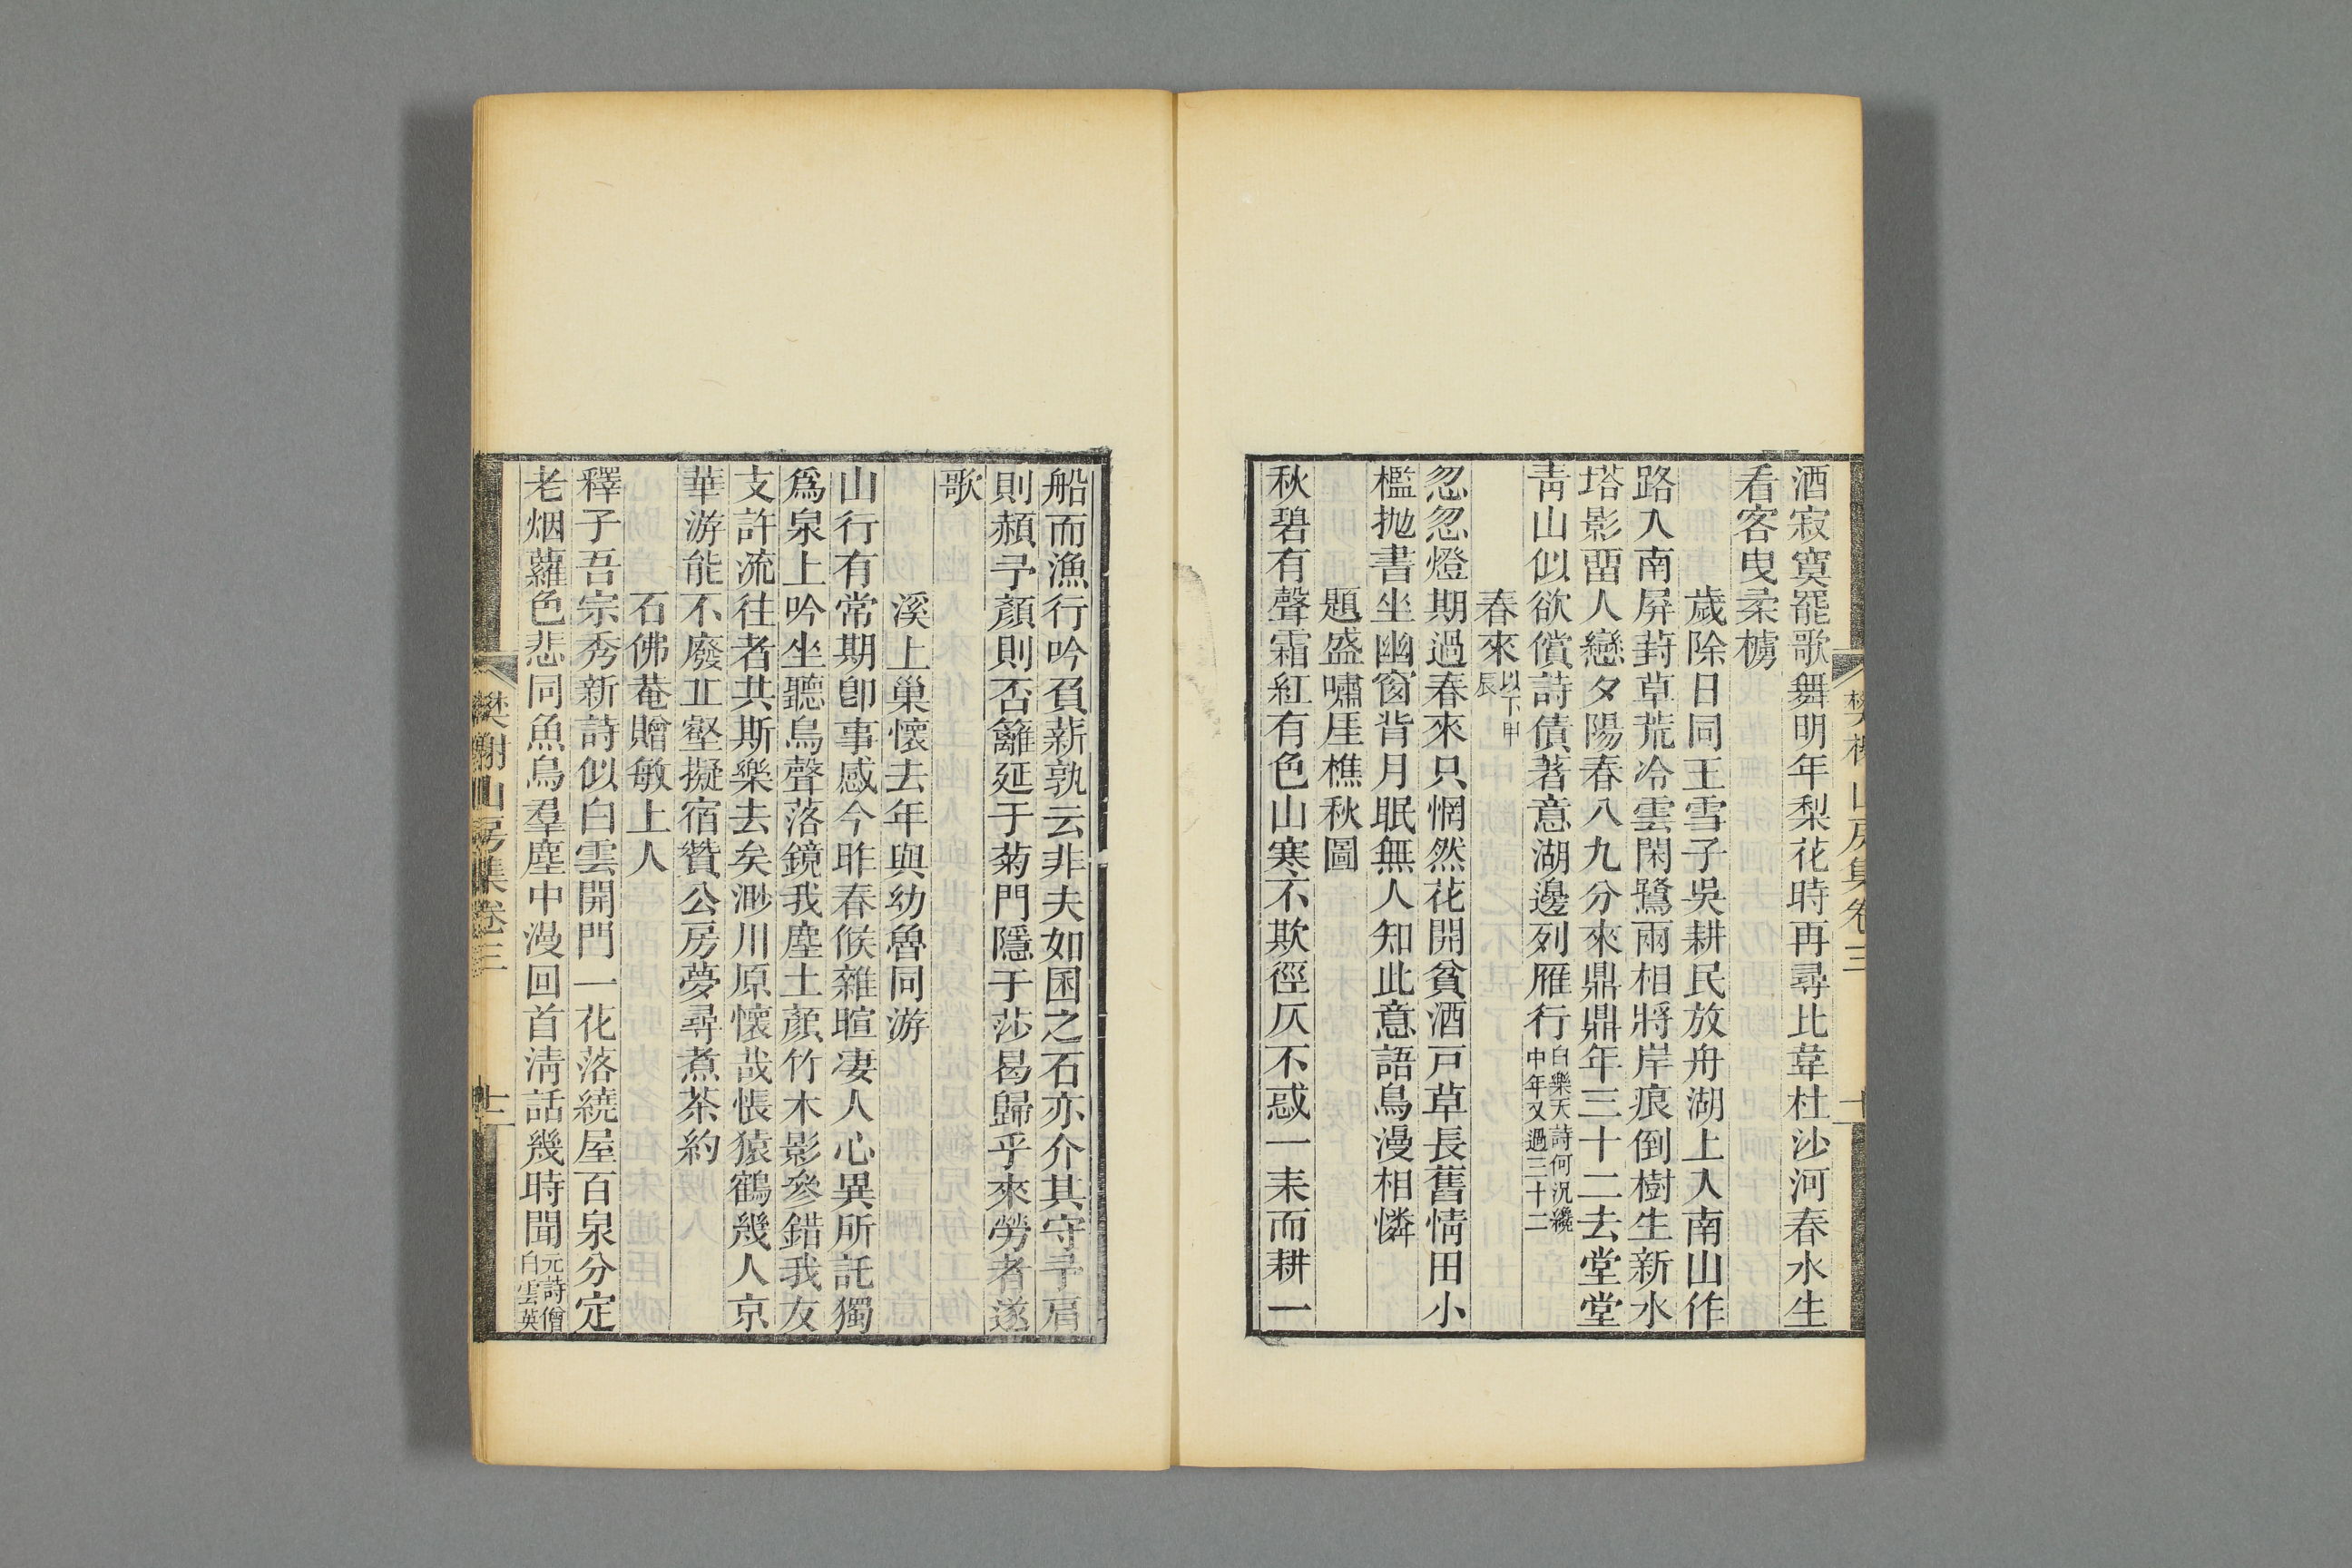 酒寂寞罷歌舞明年梨花時再尋比韋杜沙河春水生
看客曳柔櫓
歲除日同王雪子吳耕民放舟湖上入南山作
路入南屏葑草荒冷雲閑鷺雨相將岸痕倒樹生新水
塔影畱人戀夕陽春八九分來鼎鼎年三十二去堂堂
靑山似欲償詩債著意湖邊列雁行白樂天詩何況纔中年又過三十二
春來以下甲辰
忽忽燈期過春來只惘然花開貧酒戸草長舊情田小
檻拋書坐幽窗背月眠無人知此意語鳥漫相憐
題盛嘯厓樵秋圖
秋碧有聲霜紅有色山寒不欺徑仄不惑一耒而耕一
船而漁行吟負薪孰云非夫如困之石亦介其守予肩
則赬予顏則否籬延于菊門隱于莎曷歸乎來勞者遂
歌
溪上巢懷去年與幼魯同游
山行有常期卽事感今昨春候雜暄凄人心異所託獨
爲泉上吟坐聽鳥聲落鏡我塵土顏竹木影參錯我友
支許流往者共斯樂去矣渺川原懷哉悵猿鶴幾人京
華游能不廢丘壑擬宿贊公房夢尋煮茶約
石佛菴贈敏上人
釋子吾宗秀新詩似白雲開門一花落繞屋百泉分定
老烟蘿色悲同魚鳥羣塵中漫回首淸話幾時聞元詩僧白雲英
樊榭山房集卷三